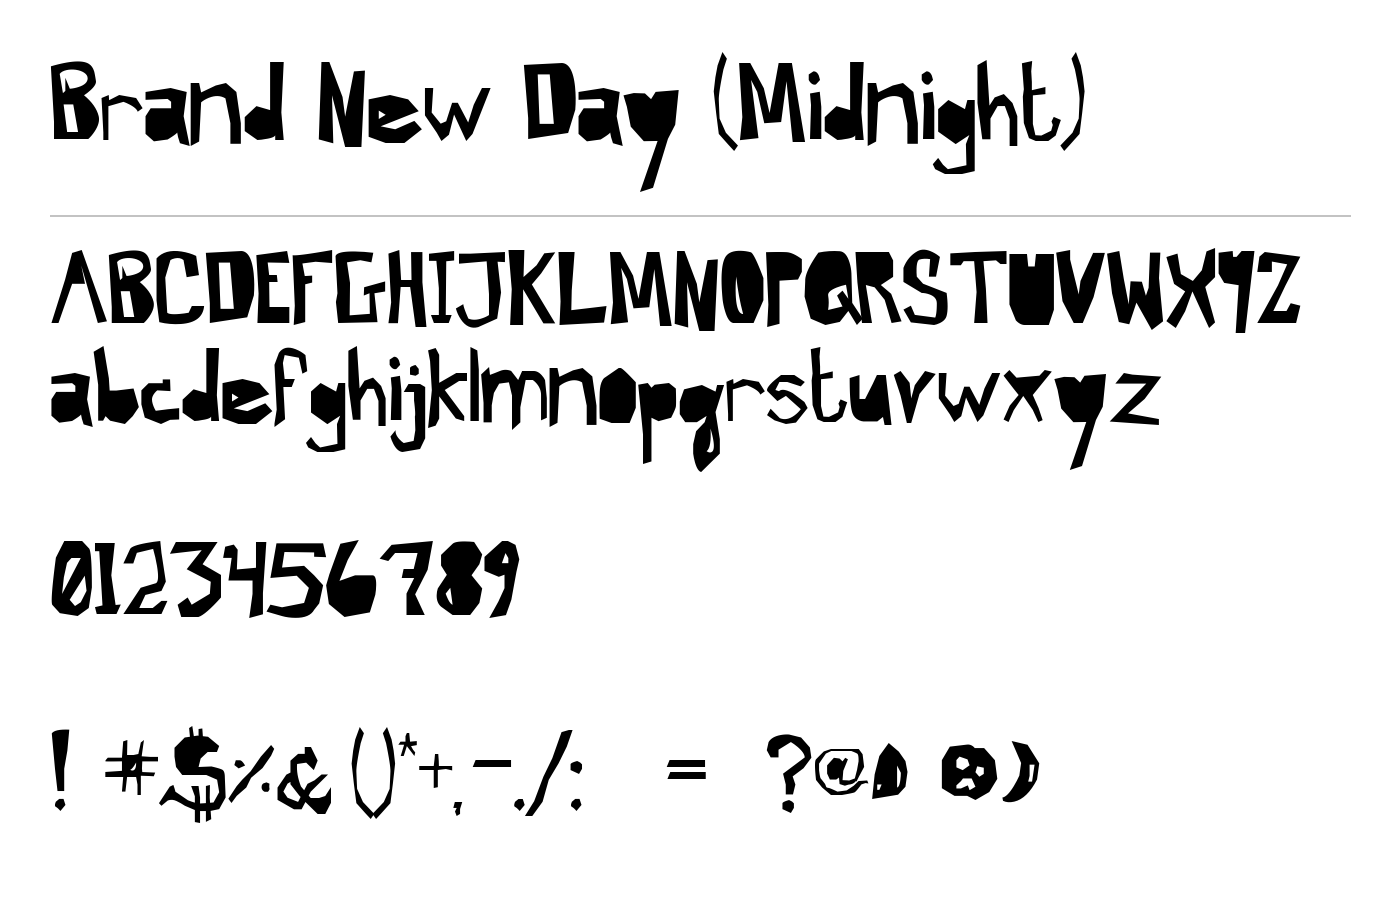 Brand New Day (Midnight)
ABCDEFGHIJKLMNOPQRSTUVWXYZ
abcdefghijklmnopqrstuvwxyz
0123456789
! #$%&()*+,-./: = ?@